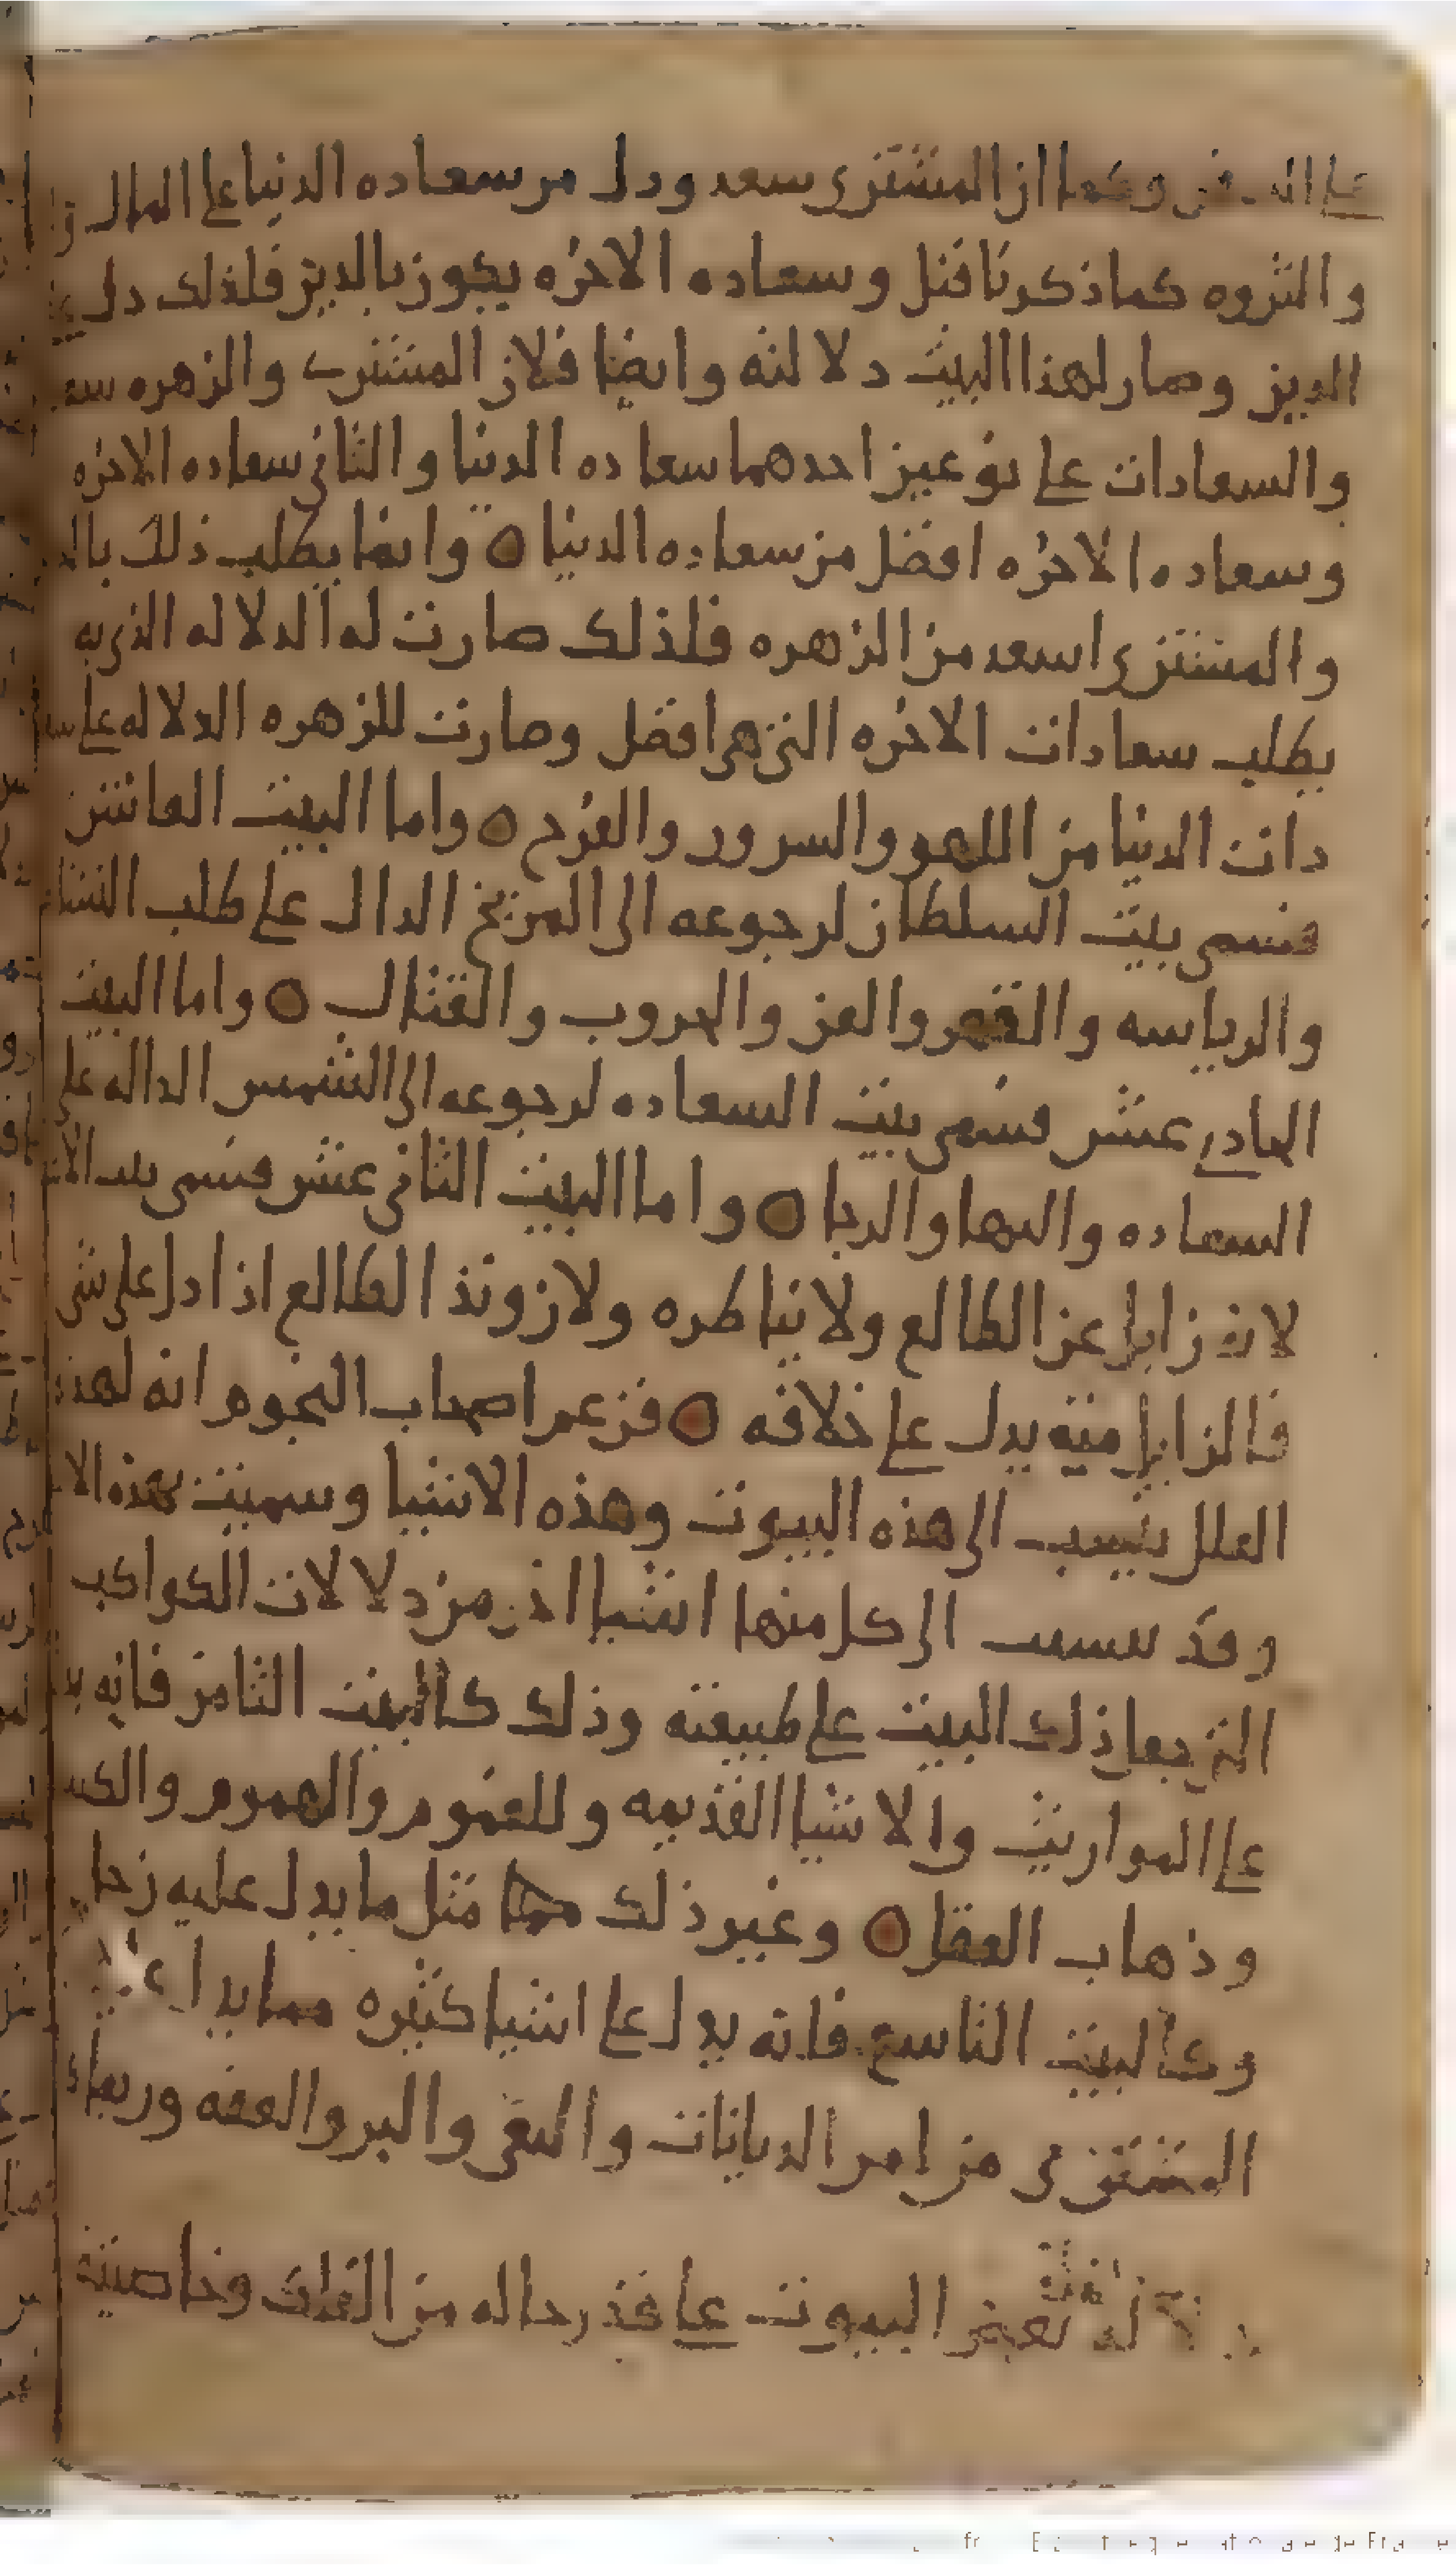 المشترى سعد ودل من سعاده الدنيا على المال
والثروه كما ذكرنا قبل وسعاده الاخره يكون بالدين فلذلك دل
الدين وصار لهذا البيت دلالته وايضا فلان المشترى والزهره
والسعادات على نوعين احدهما سعاده الدنيا والثانى سعاده الاخره
وسعاده الاخره افضل من سعاده الدنيا ٥ وانما يطلب ذلك
والمشترى اسعد من الزهره فلذلك صارت له الدلاله الذى به
يطلب سعادات الاخره التى هى افضل وصارت للزهره الدلاله على
دات الدنيا من اللهو والسرور والفرح ٥ واما البيت العاشر
فسمى بيت السلطان لرجوعه الى المريخ الدال على طلب
والرياسه والقهر والعز والحروب والقتال ٥ واما البيت
الحادى عشر فسمى بيت السعاده لرجوعه الى الشمس الداله على
السعاده والبها والربا ٥ واما البيت الثانى عشر فسمى بيت
لانه زايل عن الطالع ولا يناظره ولان وتد الطالع اذا دل على شى
فالزايل منه يدل على خلافه ٥ فزعم اصحاب النجوم انه لهذه
العلل نسب الى هذه البيوت وهذه الاشيا وسميت بهذه
وقد ينسب الى كل منها اشيا اخر من دلالات الكواكب
التى ذلك البيت على طبيعته وذلك كالبيت الثامن فانه
على المواريث والاشيا القديمه وللغموم والهموم
وذهاب العقل ٥ وغير ذلك مما مثل ما يدل عليه زحل
وكالبيت التاسع فانه يدل على اشيا كثيره مما يدل
المشترى من امر الديانات والتقى والبر والعفه
البيوت على قدر حاله من الفلك وخاصيته